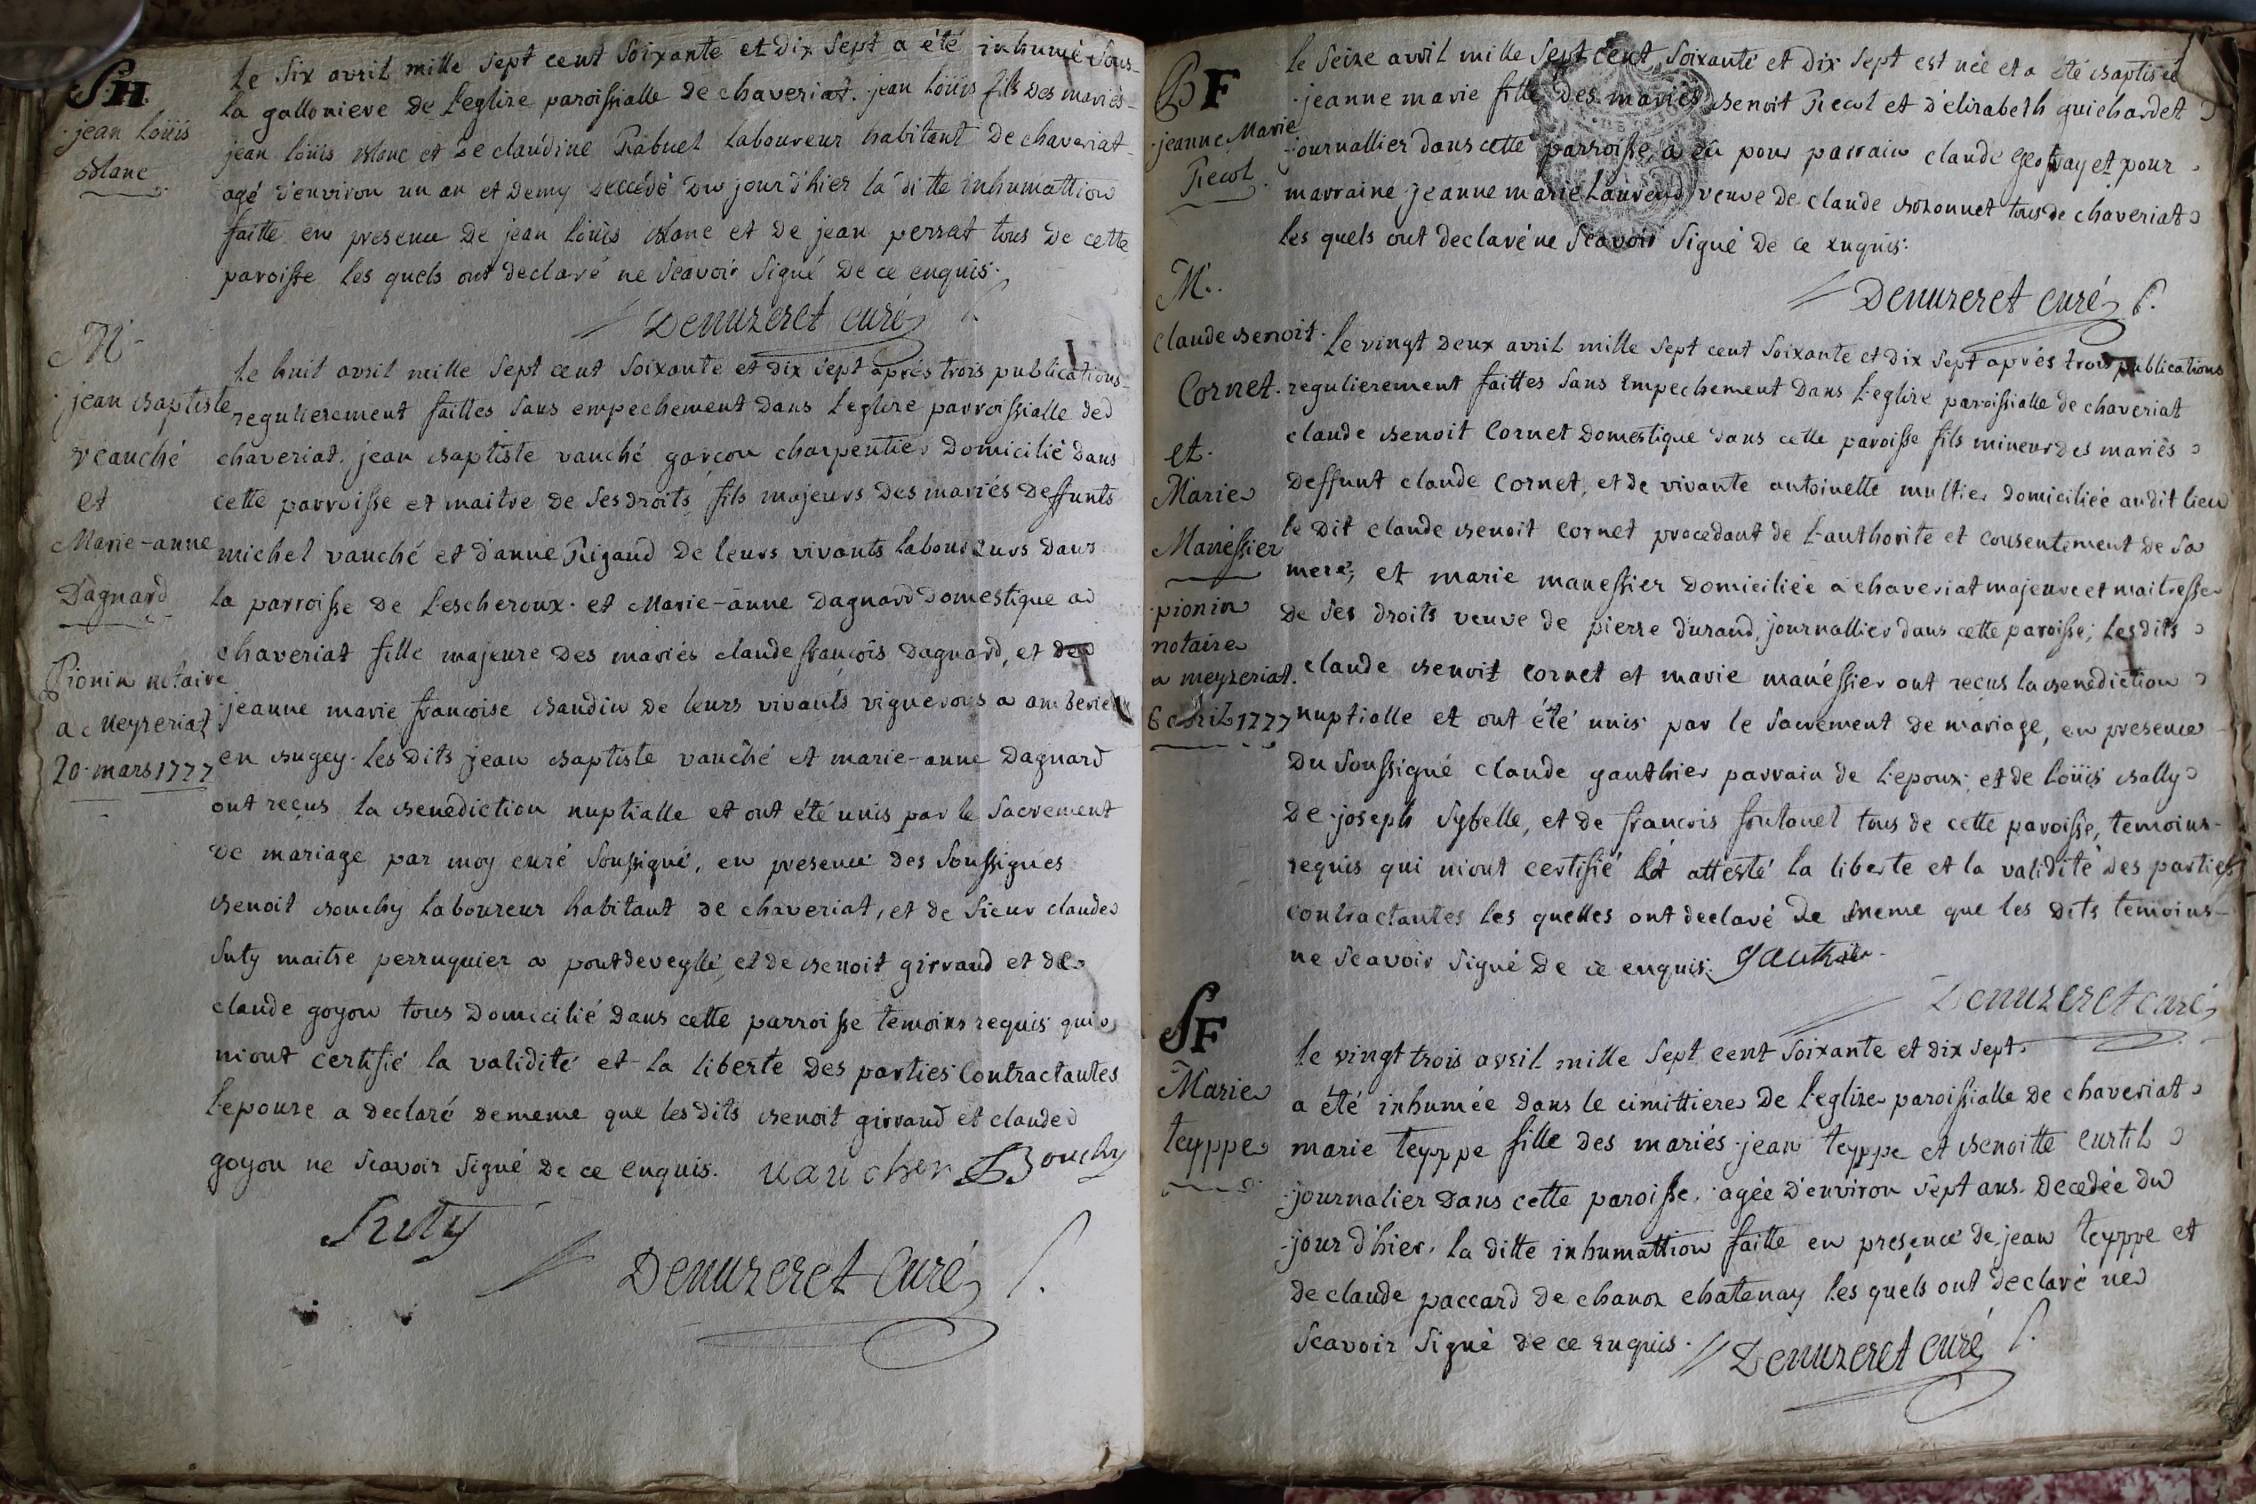 SH.
jean loüis
blanc
le six avril mille sept cent soixante et dix sept a été inhumé sous
la gallonieve de l'eglise paroissialle de chaveriat. jean loüis fils des mariés
jean loüis blanc et de claudine Rabuel laboureur habitant de chaveriat
agé d'environ un an et demy deccédé du jour d'hier la ditte inhumattion
faitte en presence de jean loüis blanc et de jean perrat tous de cette
paroisse les quels ont declaré ne scavoir signé de ce enquis.
Demuzeret curé
M
jean baptiste
veauché
et
Marie-anne
Dagnard
Pionin notaire
a Meyzeriat
20 mars 1777
le huit avril mille sept cent soixante et dix sept aprés trois publications
regulierement faittes sans empechement dans l'eglise parroissialle de
chaveriat. jean baptiste vauché garçon charpentier domicilié dans
cette parroisse et maitre de ses droits fils majeurs des mariés deffunts
michel vauché et d'anne Rigaud de leurs vivants laboureurs dans
la parroisse de l'escheroux. et Marie-anne Dagnard domestique a
chaveriat fille majeure des mariés claude francois dagnard, et de
jeanne marie francoise baudin de leurs vivants vignerons a amberie
en bugey. les dits jean baptiste vauché et marie-anne Dagnard
ont reçus la benediction nuptialle et ont été unis par le sacrement
de mariage par moy curé soussigné, en presence des soussignés
benoit bouchy laboureur habitant de chaveriat, et de sieur claude
suty maitre perruquier a pontdeveyle, et de benoit girraud et de
claude goyon tous domicilié dans cette parroisse temoins requis qui
m'ont certifié la validité et la liberté des parties contractantes
l'epouze a declaré de meme que les dits benoit girraud et claude
goyon ne scavoir signé de ce enquis. vaucher Bouchy
Suty
Demuzeret curé
BF
jeanne Marie
Recol
le seize avril mille sept cent soixante et dix sept est née et a été baptisée
jeanne marie fille des mariés benoit Recol et d'elizabeth guichardet
journallier dans cette parroisse, a eu pour parrain claude geofray et pour
marraine jeanne marie laurend veuve de claude bozonnet tous de chaveriat
les quels ont declaré ne scavoir signé de ce enquis.
Demuzeret curé
M.
claude benoit
Cornet
et
Marie
Manéssier
pionin
notaire
a meyzeriat
6 avril 1777
le vingt deux avril mille sept cent soixante et dix sept aprés trois publications
regulierement faittes sans empechement dans l'eglise paroissialle de chaveriat
claude benoit Cornet domestique dans cette paroisse fils mineur des mariés
deffunt claude Cornet, et de vivante antoinette multier domiciliée audit lieu
le dit claude benoit cornet procedant de l'authorité et consentement de sa
mere, et marie manessier domiciliée a chaveriat majeure et maitresse
de ses droits veuve de pierre durand, journallier dans cette paroisse; les dits
claude benoit cornet et marie manéssier ont reçus la benediction
nuptialle et ont été unis par le sacrement de mariage, en presence
du soussigné claude gauthier parrain de l'epoux; et de loüis bally
de joseph sybelle, et de francois foulouet tous de cette paroisse, temoins
requis qui m'ont certifié et attesté la liberté et la validité des parties
contractantes les quelles ont declaré de meme que les dits temoins
ne scavoir signé de ce enquis. gauthier
Demuzeret curé
SF
Marie
teyppe
le vingt trois avril mille sept cent soixante et dix sept.
a été inhumée dans le cimittiere de l'eglize paroissialle de chaveriat
marie teyppe fille des mariés jean teyppe et benoitte curtil
journalier dans cette paroisse. agée d'environ sept ans. decedée du
jour d'hier. la ditte inhumattion faitte en présence de jean teyppe et
de claude paccard de chanoz chatenay les quels ont declaré ne
scavoir signé de ce enquis.
Demuzeret curé